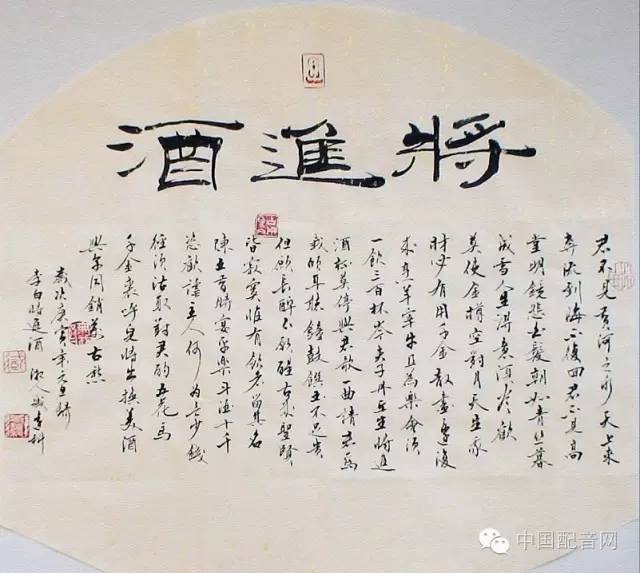 將進酒
君不見黃河之水天上來
奔流到海不復回君不見高
堂明鏡悲白髮朝如青絲暮
成雪人生得意須盡歡
莫使金樽空對月天生我
材必有用千金散盡還復
來烹羊宰牛且為樂會須
一飲三百杯岑夫子丹丘生將進
酒杯莫停與君歌一曲請君為
我傾耳聽鐘鼓饌玉不足貴
但願長醉不願醒古來聖賢
皆寂寞惟有飲者留其名
陳王昔時宴平樂斗酒十千
恣歡謔主人何為言少錢
徑須沽取對君酌五花馬
千金裘呼兒將出換美酒
與爾同銷萬古愁
歲次庚寅年元旦錄
李白將進酒
中国配音网